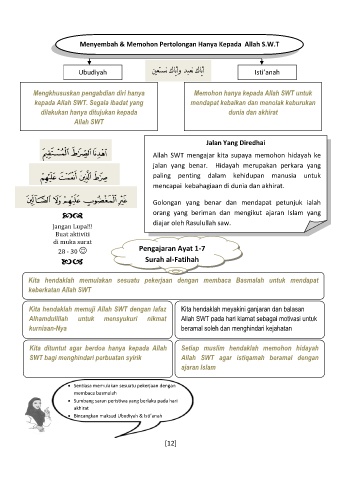 Menyembah & Memohon Pertolongan Hanya Kepada Allah S.W.T
Ubudiyah
إياك نعبد وإياك نستعين
Isti'anah
Mengkhususkan pengabdian diri hanya
kepada Allah SWT. Segala ibadat yang
dilakukan hanya ditujukan kepada
Allah SWT
Memohon hanya kepada Allah SWT untuk
mendapat kebaikan dan menolak keburukan
dunia dan akhirat
اهدنا الصراط المستقيم
صراط الذين أنعمت عليهم
غير المغضوب عليهم ولا الضالين
Jangan Lupa!!!
Buat aktiviti
di muka surat
28 - 30 ☺
Jalan Yang Diredhai
Allah SWT mengajar kita supaya memohon hidayah ke
jalan yang benar. Hidayah merupakan perkara yang
paling penting dalam kehidupan manusia untuk
mencapai kebahagiaan di dunia dan akhirat.
Golongan yang benar dan mendapat petunjuk ialah
orang yang beriman dan mengikut ajaran Islam yang
diajar oleh Rasulullah saw.
Pengajaran Ayat 1-7
Surah al-Fatihah
Kita hendaklah memulakan sesuatu pekerjaan dengan membaca Basmalah untuk mendapat
keberkatan Allah SWT
Kita hendaklah memuji Allah SWT dengan lafaz
Alhamdulillah untuk mensyukuri nikmat
kurniaan-Nya
Kita hendaklah meyakini ganjaran dan balasan
Allah SWT pada hari kiamat sebagai motivasi untuk
beramal soleh dan menghindari kejahatan
Kita dituntut agar berdoa hanya kepada Allah
SWT bagi menghindari perbuatan syirik
Setiap muslim hendaklah memohon hidayah
Allah SWT agar istiqamah beramal dengan
ajaran Islam
• Sentiasa memulakan sesuatu pekerjaan dengan
membaca basmalah
• Sumbang saran peristiwa yang berlaku pada hari
akhirat
• Bincangkan maksud Ubudiyah & Isti'anah
[12]